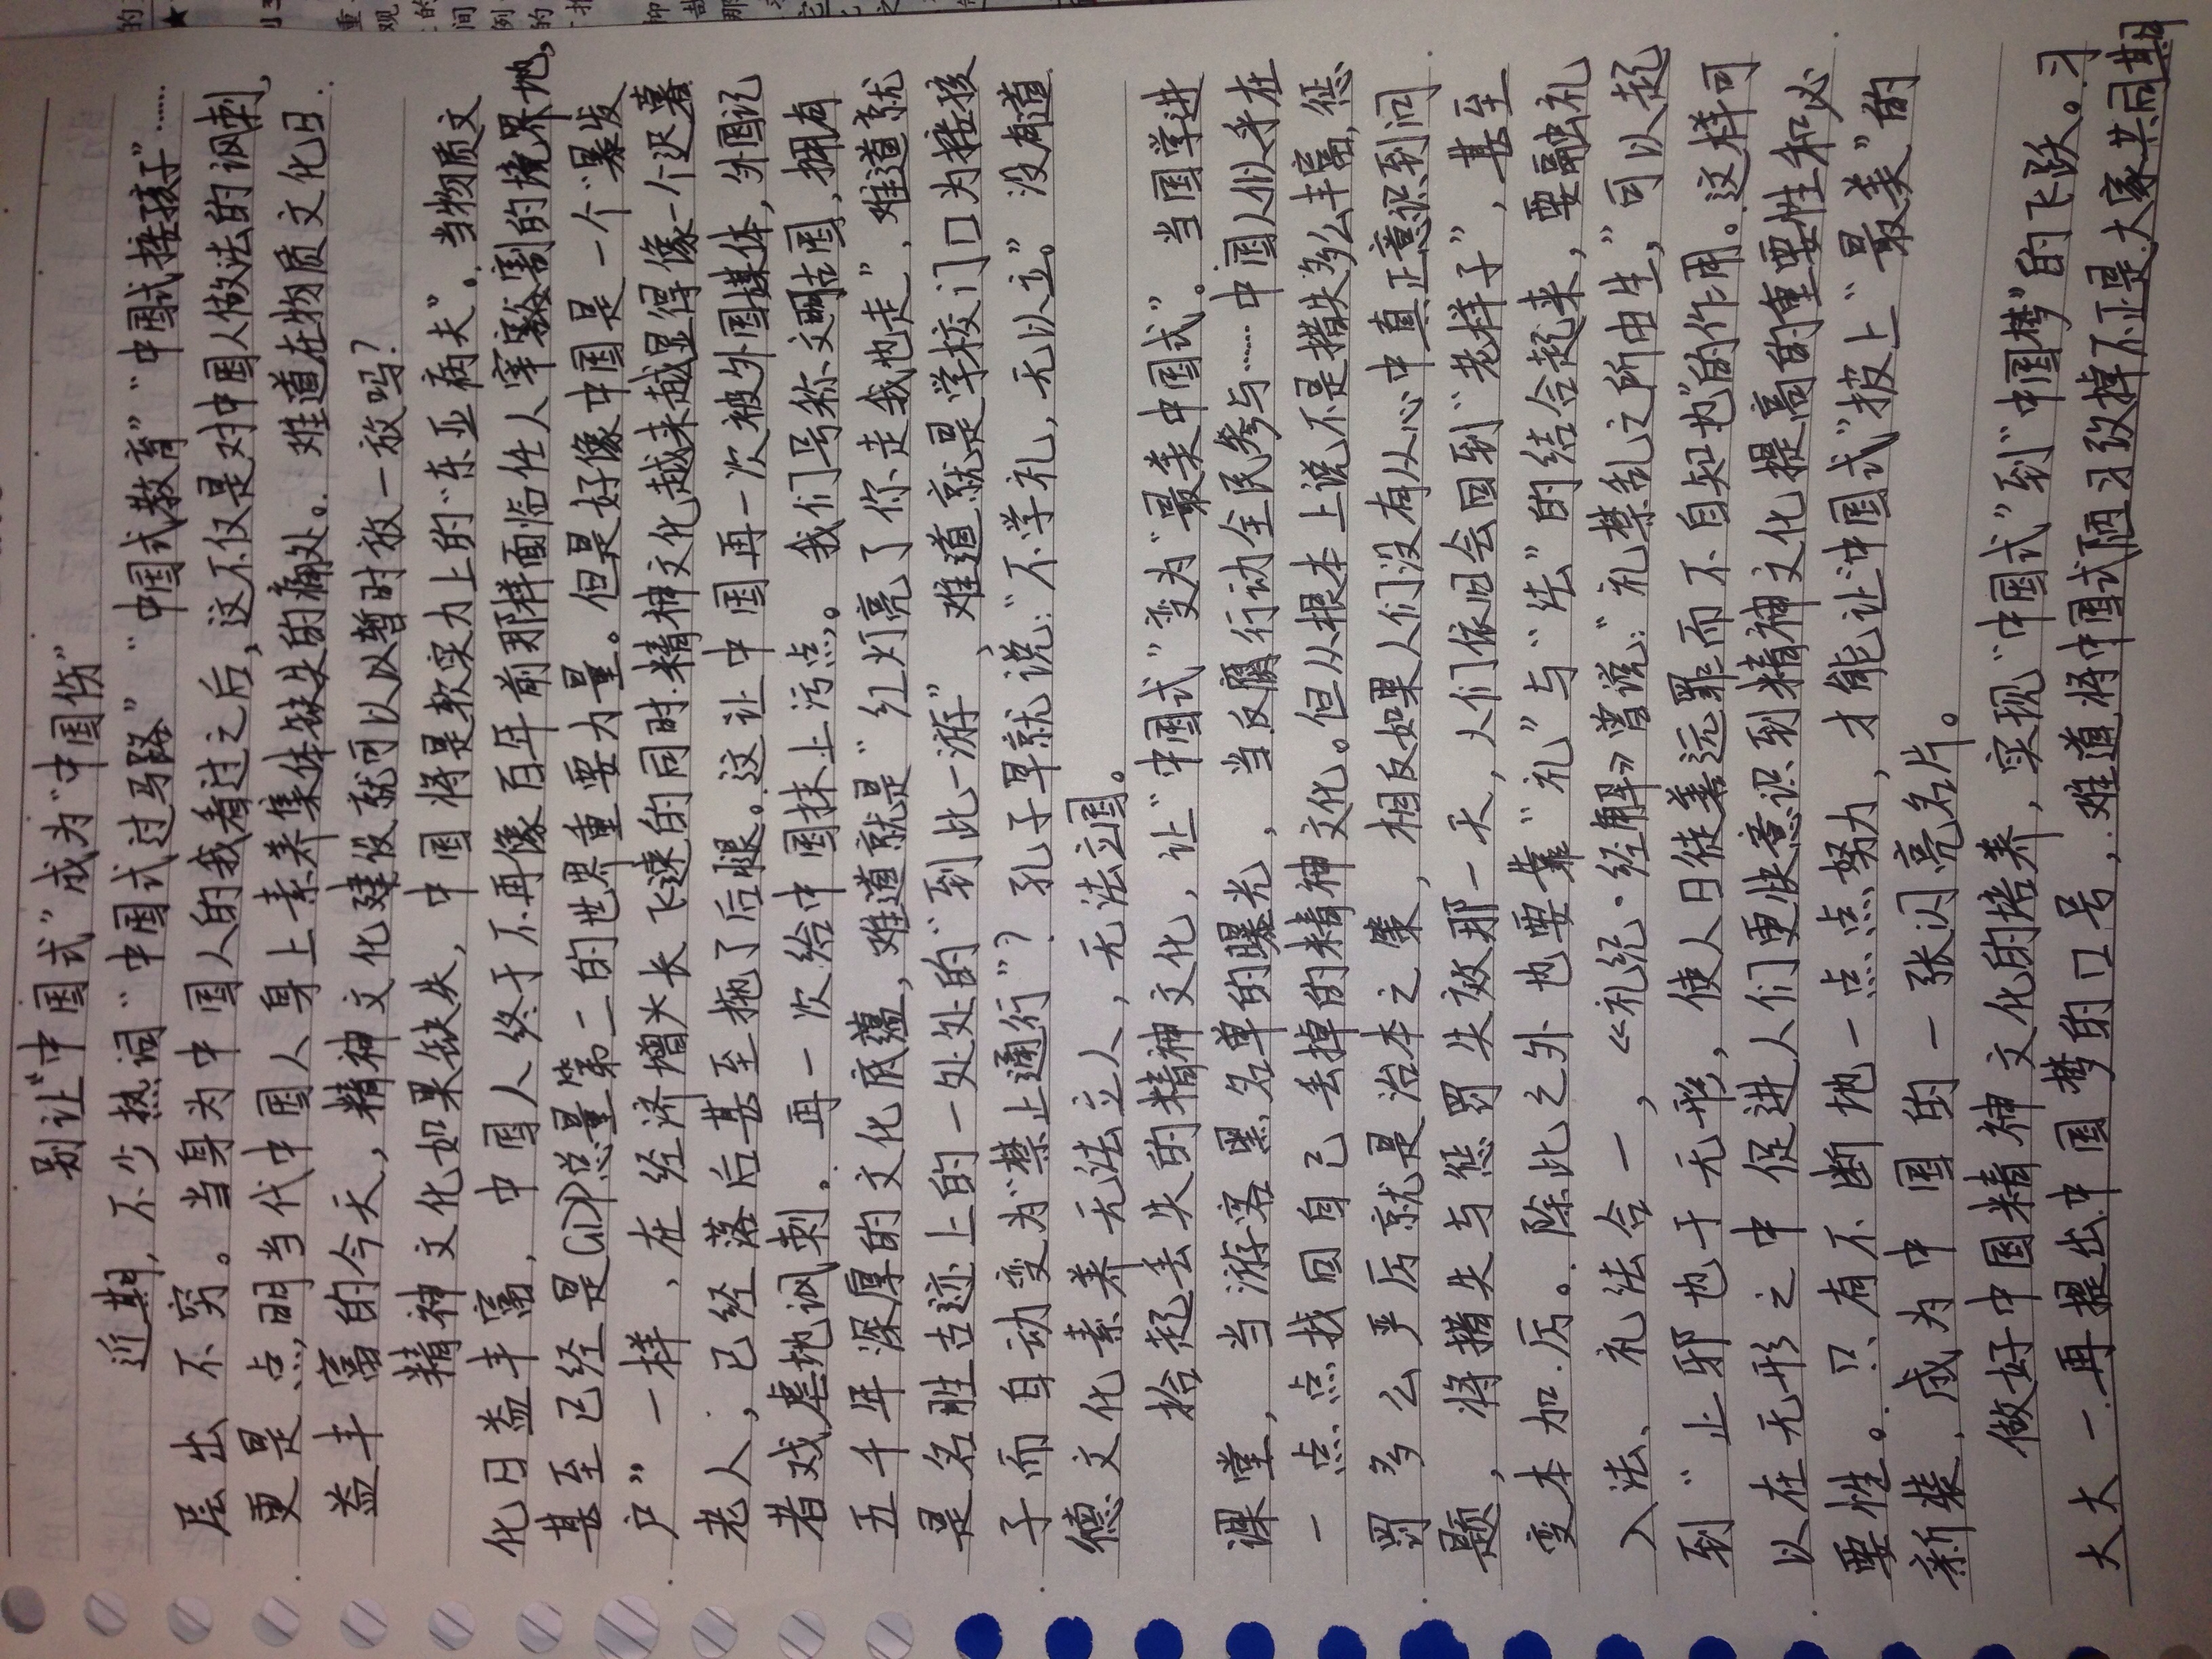 别让“中国式”成为“中国伤”
近期，不少热词“中国式过马路”“中国式教育”“中国式接孩子”……
层出不穷。当身为中国人的我看过之后，这不仅是对中国人做法的讽刺，
更是点明当代中国人身上素养集体缺失的痛处。难道在物质文化日
益丰富的今天，精神文化建设就可以以暂时放一放吗？
精神文化如果缺失，中国将是软实力上的“东亚病夫”。当物质文
化日益丰富，中国人终于不再像百年前那样面临任人宰割的境界地，
甚至已经是GDP总量第二的世界重要力量。但是好像中国是一个“暴发
户”一样，在经济增长飞速的同时精神文化越来越显得像一个迟暮
老人，已经落后甚至拖了后腿。这让中国再一次被外国媒体，外国记
者戏虐地讽刺。再一次给中国抹上污点。我们号称文明古国，拥有
五千年深厚的文化底蕴，难道就是“红灯亮了你走我也走”，难道就
是名胜古迹上的一处处的“到此一游”，难道就是学校门口为接孩
子而自动变为“禁止通行”？孔子早就说：“不学礼，无以立。”没有道
德文化素养无法立人，无法立国。
拾起丢失的精神文化，让“中国式”变为“最美中国式”。当国学进
课堂，当游客黑名单的曝光，当反腐行动全民参与……中国人似乎在
一点点找回自己丢掉的精神文化。但从根本上说不是措失多么丰富，惩
罚多么严厉就是治本之策，相反如果人们没有从心中真正意识到问
题，将措失与惩罚失效那一天，人们依旧会回到“老样子”，甚至
变本加厉。除此之外也要靠“礼”与“法”的结合起来，要融礼
入法、礼法合一，《礼记·经解》曾说：“礼禁乱之所由生，”可以起
到“止邪也于无形，使人日徙善远罪而不自知也”的作用。这样可
以在无形之中促进人们更快意识到精神文化提高的重要性和必
要性。只有不断地一点点努力，才能让“中国式”披上“最美”的
新装，成为中国的一张闪亮名片。
做好中国精神文化的培养，实现“中国式”到“中国梦”的飞跃。习
大大一再提出中国梦的口号，难道将中国式陋习改掉不正是大家共同期